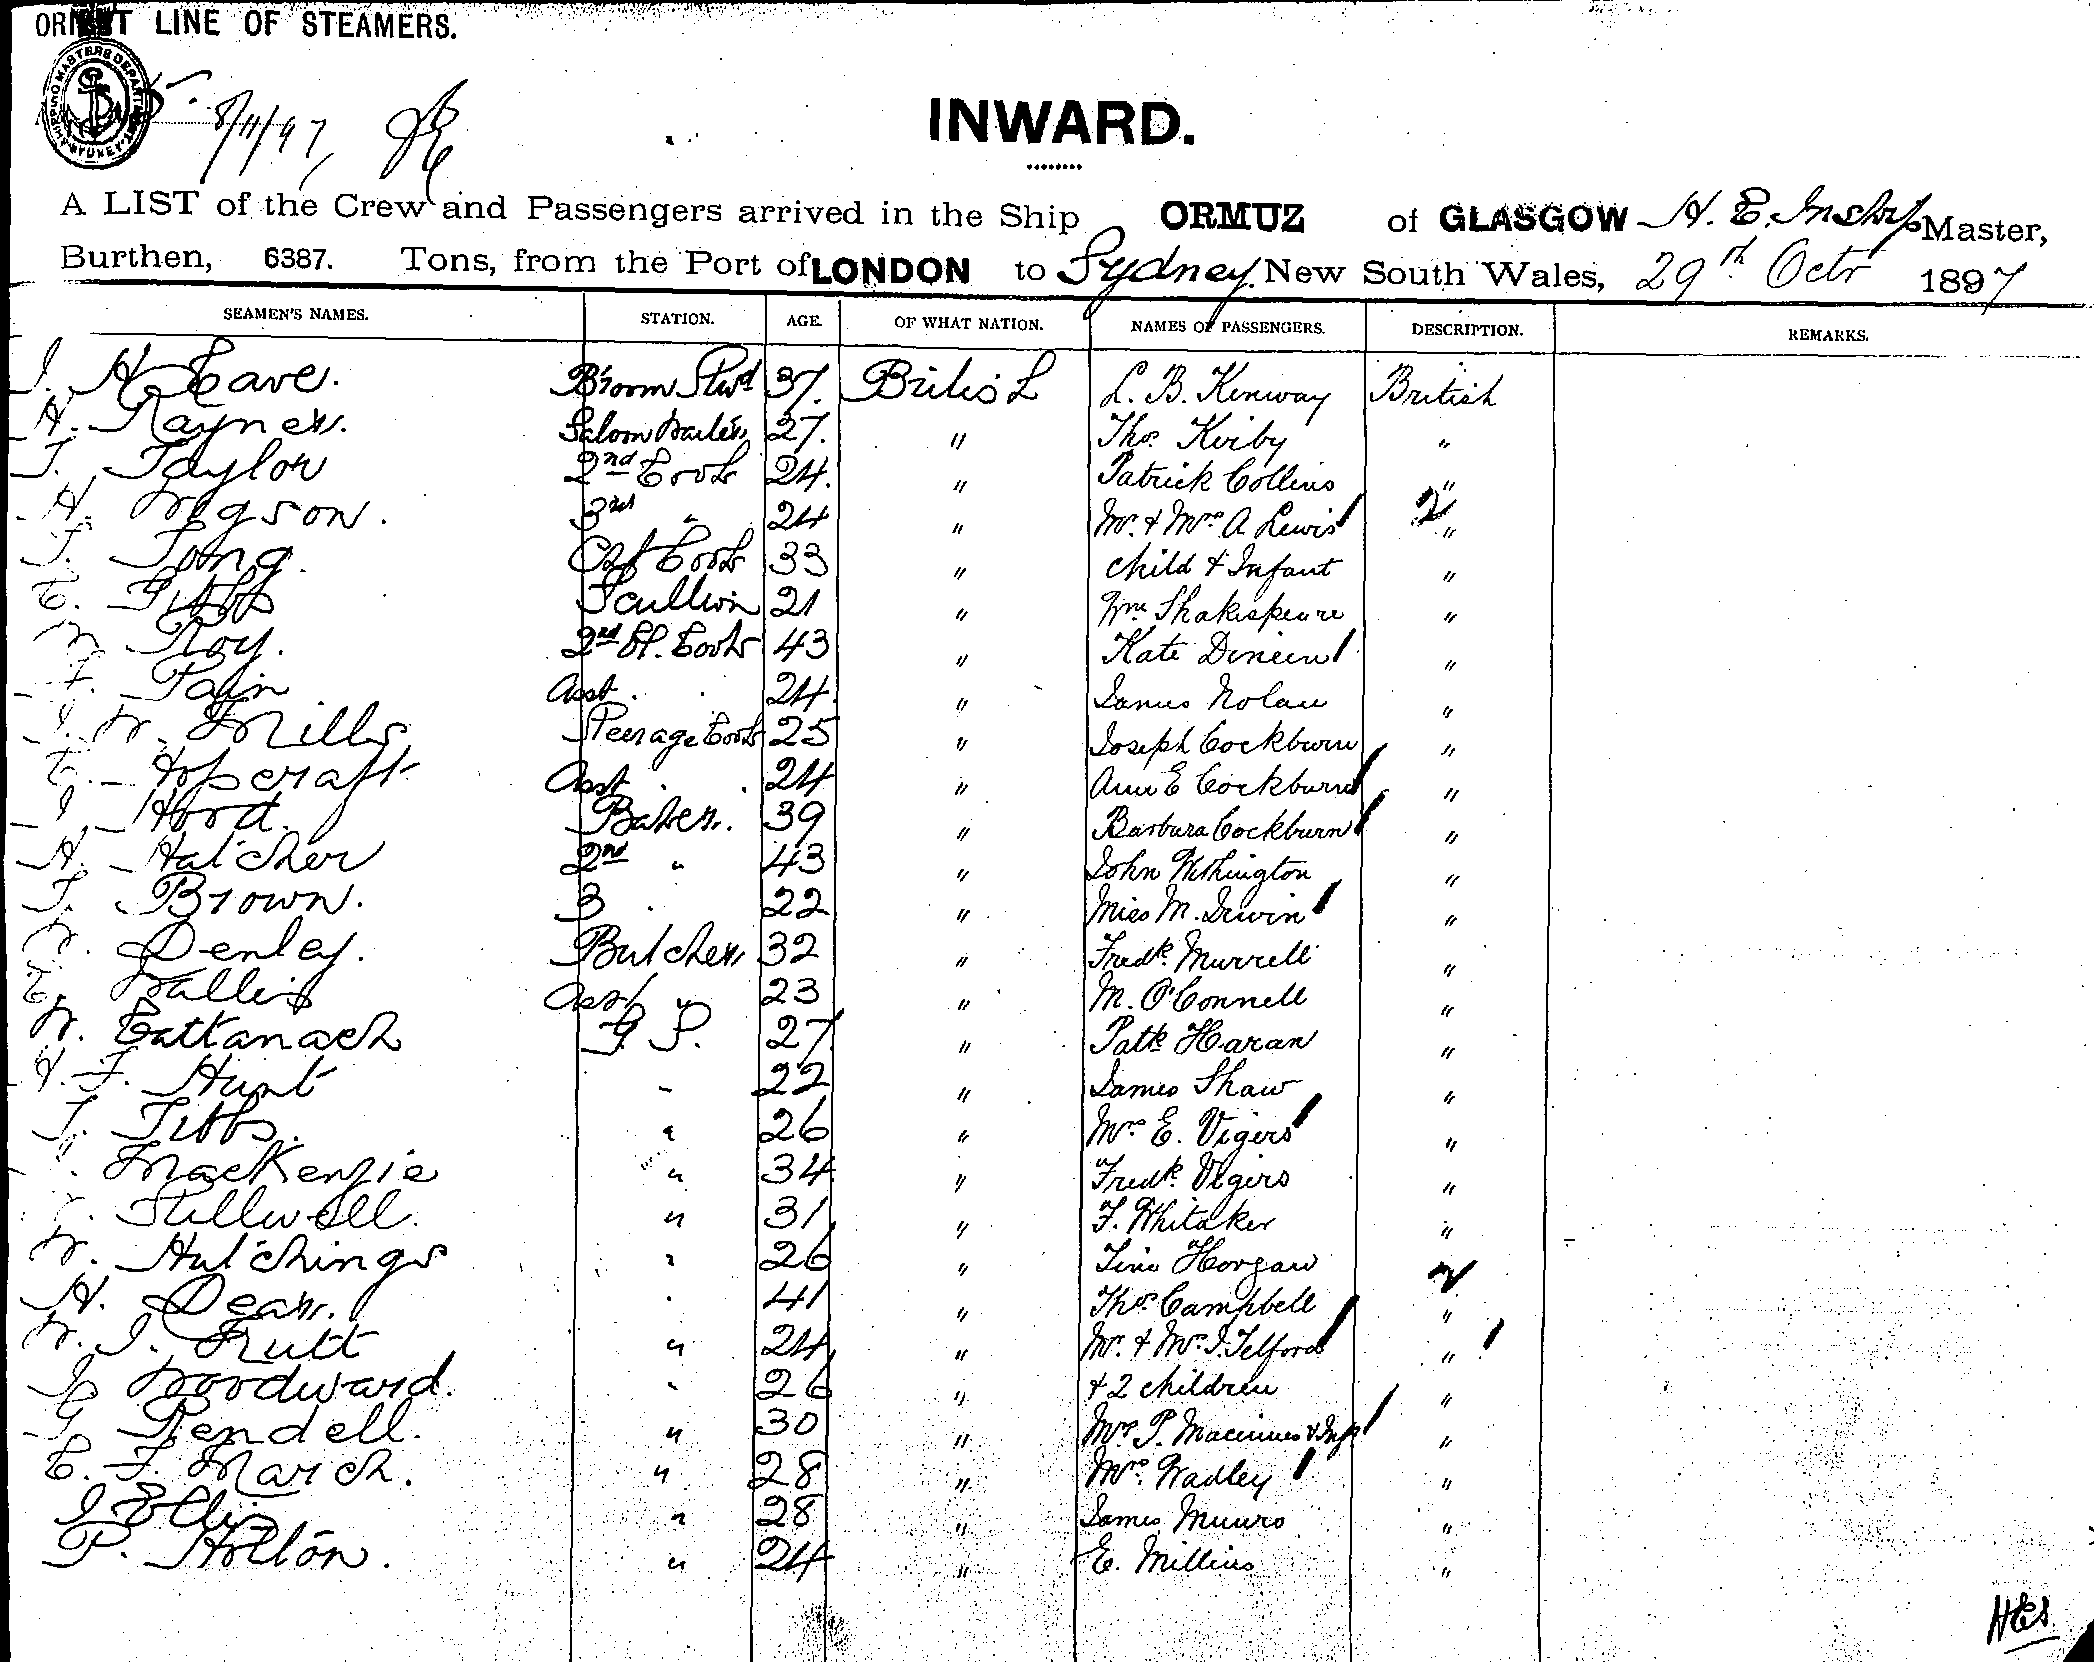 ORIENT LINE OF STEAMERS.
8/11/97
INWARD.
A LIST of the Crew and Passengers arrived in the Ship ORMUZ of GLASGOW H. E. Inskip Master,
Burthen, 6387. Tons, from the Port of LONDON to Sydney New South Wales, 29th Octr 1897
SEAMEN'S NAMES. STATION. AGE. OF WHAT NATION. NAMES OF PASSENGERS. DESCRIPTION. REMARKS.
J. H. Cave. B'room Stwd 37. British L. B. Kenway British
H. Rayner. Saloon Waiter 27. " Thos. Kirby "
T. Taylor 2nd Cook 24. " Patrick Collins "
H. 3rd " 24 " Mr. & Mrs A Lewis 2 "
T. Long. Asst Cook 33 " child & Infant "
C. Scullion 21 " Wm Shakespeare "
W Roy. 2nd Cook 43 " Kate Dineen "
F. Pain Asst. 24 " James Nolan "
J. W. Mills Steerage Cook 25 " Joseph Cockburn "
C. Hopcraft Asst 24 " Ann E Cockburn "
J. Hord. Baker. 39 " Barbara Cockburn "
H. Hatcher 2nd " 43 " John Withington "
T. Brown. 3 22 " Miss M. Irwin "
W. Denley. Butcher 32 " Fredk. Murrell "
E. Wallis Asst " 23 " M. O'Connell "
W. Cattanach G. S. 27 " Patk Haran "
H. F. Hunt " 22 " James Shaw "
T. Tibbs. " 26 " Mrs E. Vigers "
MacKenzie " 34 " Fredk. Vigers "
Stillwell. " 31 " F. Whitaker "
W. Hutchings " 26 " Horgan 2
H. Dean. 41 " Thos. Campbell "
W. J. Rutt " 24 " Mr. & Mrs J. Telford "
Woodward. " 26 " & 2 children "
G Pendell. " 30 " Mrs P. Macinnes & Inft "
C. F. March. " 28 " Mrs. Wadley "
J Ellis " 28 " James Munro "
P. Holton. " 24 " E. Millins "